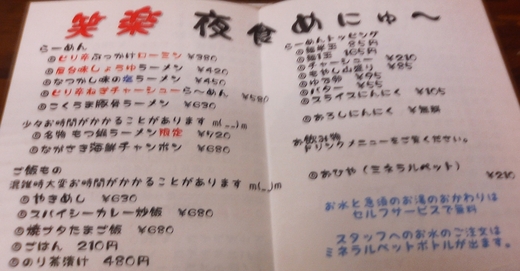 笑楽 夜食めにゅ〜
らーめん
◎ピリ辛ぶっかけローミン ¥380
◎屋台味しょうゆラーメン ¥420
◎なつかし味の塩ラーメン ¥450
◎ピリ辛ねぎチャーシューら〜めん ¥580
◎こくうま豚骨ラーメン ¥630
少々お時間がかかることがあります m(__)m
◎名物 もつ鍋ラーメン限定 ¥720
◎ながさき海鮮チャンポン ¥680
ご飯もの
混雑時大変お時間がかかることがあります m(__)m
◎やきめし ¥630
◎スパイシーカレー炒飯 ¥680
◎焼ブタたまご飯 ¥680
◎ごはん 210円
◎のり茶漬け 480円
らーめんトッピング
85円
105円
◎チャーシュー ¥210
◎もやし山盛り ¥85
◎ゆで卵 ¥95
◎バター ¥55
◎スライスにんにく ¥105
◎おろしにんにく ¥無料
お飲み物
ドリンクメニューをご覧ください。
◎おひや(ミネラルペット) ¥210
お水と急須のお湯のおかわりは
セルフサービスで無料
スタッフへのお水のご注文は
ミネラルペットボトルが出ます。